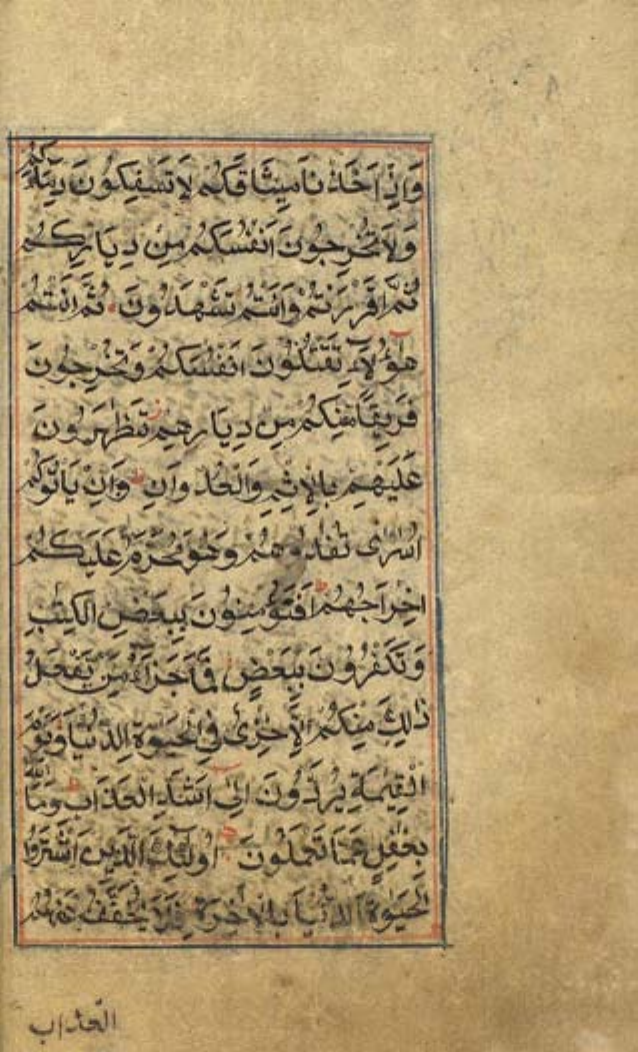 وَاِذْ اَخَذْنَا مِیْثَاقَكُمْ لَا تَسْفِكُوْنَ دِمَآءَكُمْ
وَلَا تُخْرِجُوْنَ اَنْفُسَكُمْ مِنْ دِیَارِكُمْ
ثُمَّ اَقْرَرْتُمْ وَاَنْتُمْ تَشْهَدُوْنَ ثُمَّ اَنْتُمْ
هٰٓؤُلَآءِ تَقْتُلُوْنَ اَنْفُسَكُمْ وَتُخْرِجُوْنَ
فَرِیْقًا مِنْكُمْ مِنْ دِیَارِهِمْ تَظٰهَرُوْنَ
عَلَیْهِمْ بِالْاِثْمِ وَالْعُدْوَانِ ط وَاِنْ یَاْتُوْكُمْ
اُسٰرٰى تُفٰدُوْهُمْ وَهُوَ مُحَرَّمٌ عَلَیْكُمْ
اِخْرَاجُهُمْ ط اَفَتُؤْمِنُوْنَ بِبَعْضِ الْكِتٰبِ
وَتَكْفُرُوْنَ بِبَعْضٍ فَمَا جَزَآءُ مَنْ یَفْعَلُ
ذٰلِكَ مِنْكُمْ اِلَّا خِزْىٌ فِی الْحَیٰوةِ الدُّنْیَا وَیَوْمَ
الْقِیٰمَةِ یُرَدُّوْنَ اِلٰٓى اَشَدِّ الْعَذَابِ ط وَمَا اللّٰهُ
بِغٰفِلٍ عَمَّا تَعْمَلُوْنَ اُولٰٓئِكَ الَّذِیْنَ اشْتَرَوُا
الْحَیٰوةَ الدُّنْیَا بِالْاٰخِرَةِ فَلَا یُخَفَّفُ عَنْهُمُ
العذاب